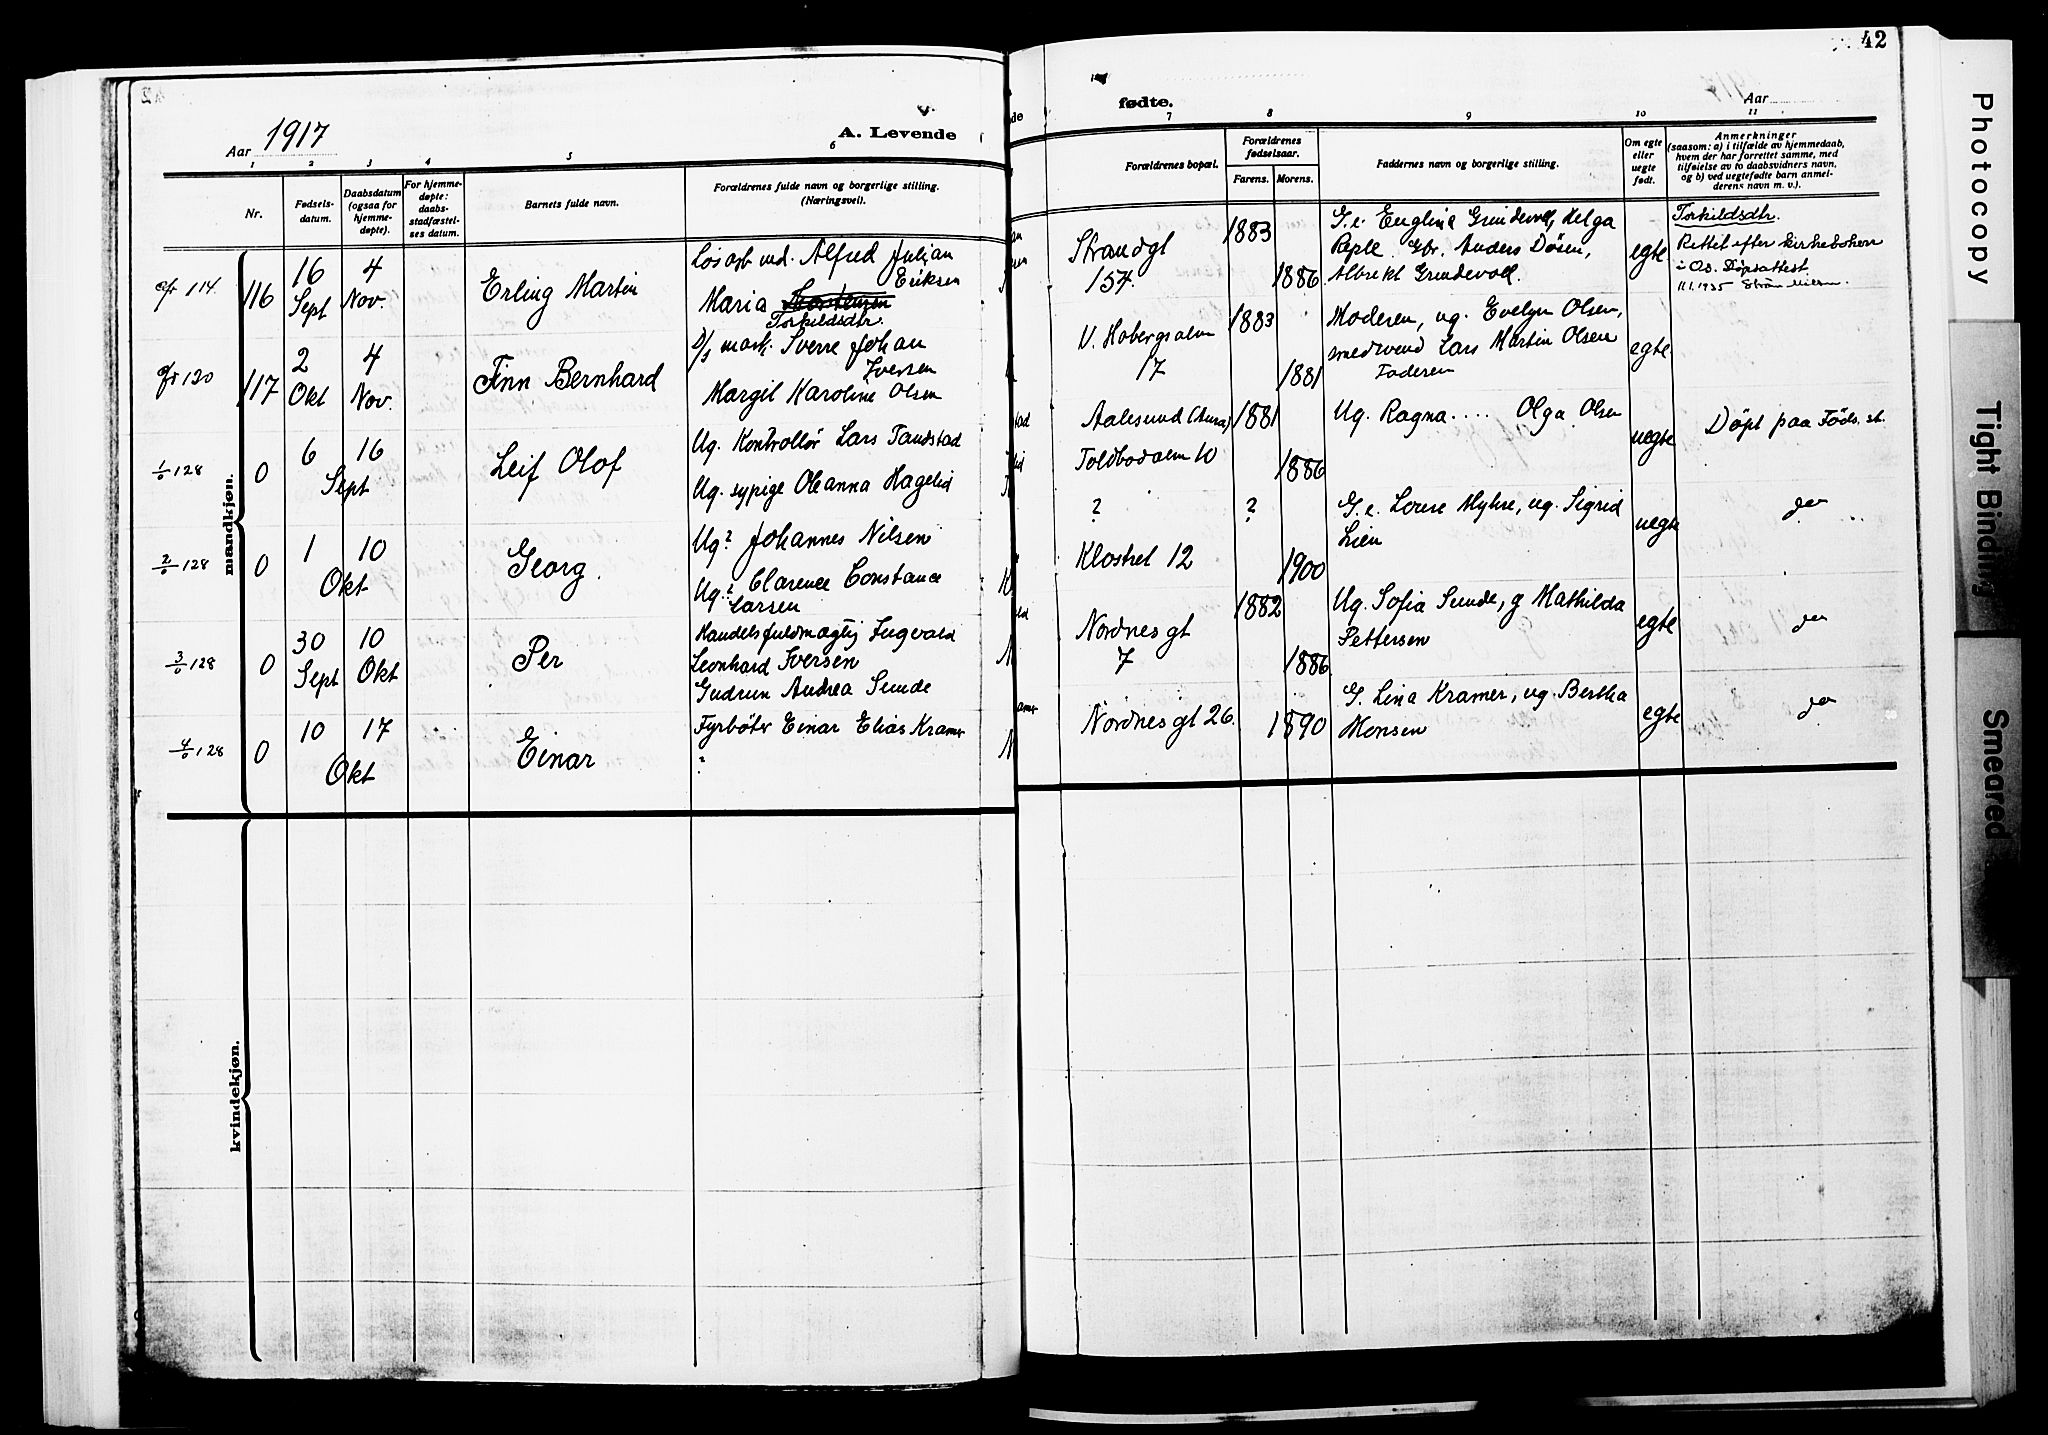 42
Aar 1917
A. Levende
fødte.
Aar
1 2 3 4 5 6
7 8 9 10 11
Nr.
Fødsels-
datum.
Daabsdatum
(ogsaa for
hjemme-
døpte).
For hjemme-
døpte:
daabs-
stadfæstel-
ses datum.
Barnets fulde navn.
Forældrenes fulde navn og borgerlige stilling.
(Næringsvei).
Forældrenes bopæl.
Forældrenes
fødselsaar.
Farens. Morens.
Faddernes navn og borgerlige stilling.
Om egte
eller
uegte
født.
Anmerkninger
(saasom: a) i tilfælde av hjemmedaab,
hvem der har forrettet samme, med
tilføielse av to daabsvidners navn,
og b) ved uegtefødte barn anmel-
derens navn m. v.).
mandkjøn.
114 116
16 Sept
4 Nov.
Erling Martin
Løsarb. ud. Alfred Julian
Eriksen
Maria
Torkildsdtr.
Strandgt
157
1883
1886
G. e. Englina Grindevoll, Helga
Reple. Gbr. Anders Døsen,
Albrekt Grindevoll.
egte
Torkildsdtr.
Rettet efter kirkeboken
i Os. Døpsattest
11.1.1935
120 117
2 Okt
4 Nov.
Finn Bernhard
D/s mask. Sverre Johan
Iversen
Margit Karoline Olsen
V. Hobergsalm
17
1883
1881
Moderen, ug. Evelyn Olsen,
smedsvend Lars Martin Olsen
Faderen
egte
1/0 128 0
6 16
Sept
Leif Olof
Ug. Kontrollør Lars Tandstad
Ug. sypige Oleanna Hagelid
Aalesund
Toldbodalm 10
1881
1886
Ug. Ragna .... Olga Olsen
uegte
Døpt paa Føds. st.
2/0 128 0
1 10
Okt
Georg.
Ug? Johannes Nilsen
Ug.? Clarence Constance
Larsen
?
Klostret 12
?
1900
G. e. Lovise Myhre, ug. Sigrid
Lien
uegte
do
3/0 128 0
30 Sept
10 Okt
Per
Handelsfuldmægtig Ingvald
Leonhard Iversen
Gudrun Andrea Sunde
Nordnesgt
7
1882
1886
Ug. Sofia Sunde, g Mathilda
Pettersen
egte
do
4/0 128 0
10 17
Okt
Einar
Fyrbøter Einar Elias Kramer
?
Nordnesgt 26.
1890
G. Lina Kramer, ug. Bertha
Monsen
egte
do
kvindekjøn.
Photocopy
Tight Binding
Smeared